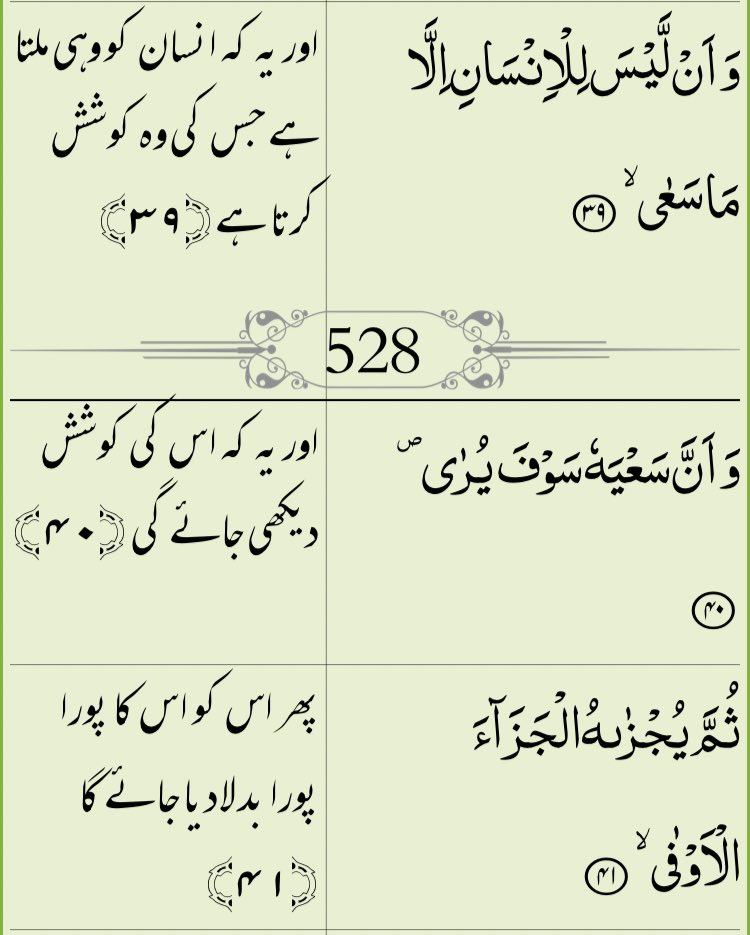 وَ اَنْ لَّیْسَ لِلْاِنْسَانِ اِلَّا
مَا سَعٰی ۙ ﴿۳۹﴾
اور یہ کہ انسان کو وہی ملتا
ہے جس کی وہ کوشش
کرتا ہے ﴿۳۹﴾
528
وَ اَنَّ سَعْیَهٗ سَوْفَ یُرٰی ۪
﴿۴۰﴾
اور یہ کہ اس کی کوشش
دیکھی جائے گی ﴿۴۰﴾
ثُمَّ یُجْزٰىهُ الْجَزَآءَ
الْاَوْفٰی ۙ ﴿۴۱﴾
پھر اس کو اس کا پورا
پورا بدلا دیا جائے گا
﴿۴۱﴾